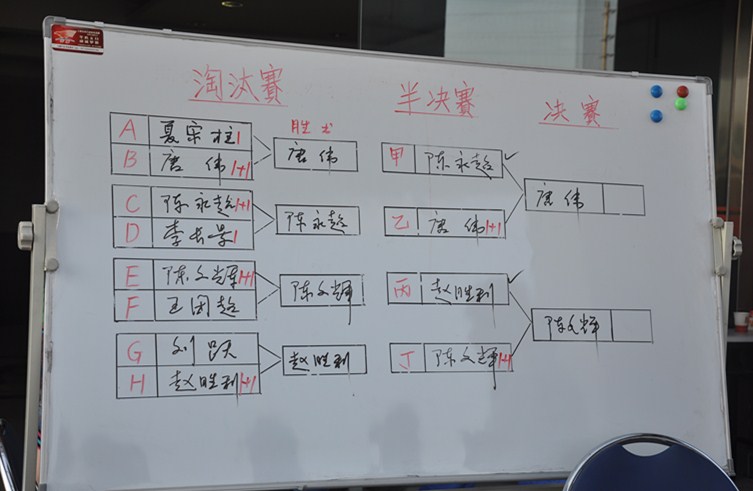 淘汰赛
A 夏宗柱 1
B 唐伟 1+1
C 陈永超 1+1
D
E 陈文辉 1+1
F 王国超
G 刘跃
H 赵胜利 1+1
胜者
唐伟
陈永超
陈文辉
赵胜利
半决赛
甲 陈永超 ✓
乙 唐伟 1+1
丙 赵胜利 ✓
丁 陈文辉 1+1
决赛
唐伟
陈文辉